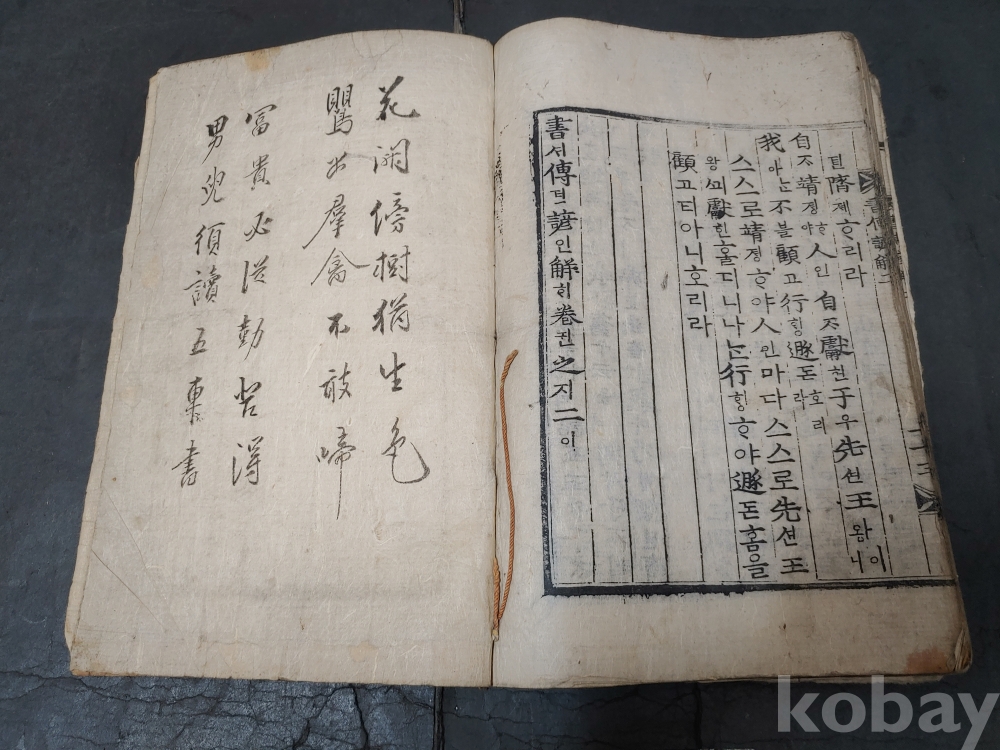 뎐隮졔ᄒᆞ리라
自ᄌᆞ靖졍ᄒᆞ야人인自ᄌᆞ獻헌于우先션王왕이니
我아ᄂᆞᆫ不불顧고行ᄒᆡᆼ遯돈호리라
스스로靖졍ᄒᆞ야人인마다스스로先션王
왕ᄭᅴ獻헌홀디니나ᄂᆞᆫ行ᄒᆡᆼᄒᆞ야遯돈홈을
顧고티아니호리라
書셔傳뎐諺언解ᄒᆡ卷권之지二이
書傳諺解二
花開傍樹猶生色
鸎出羣禽不敢啼
富貴必從勤苦得
男兒須讀五車書
kobay